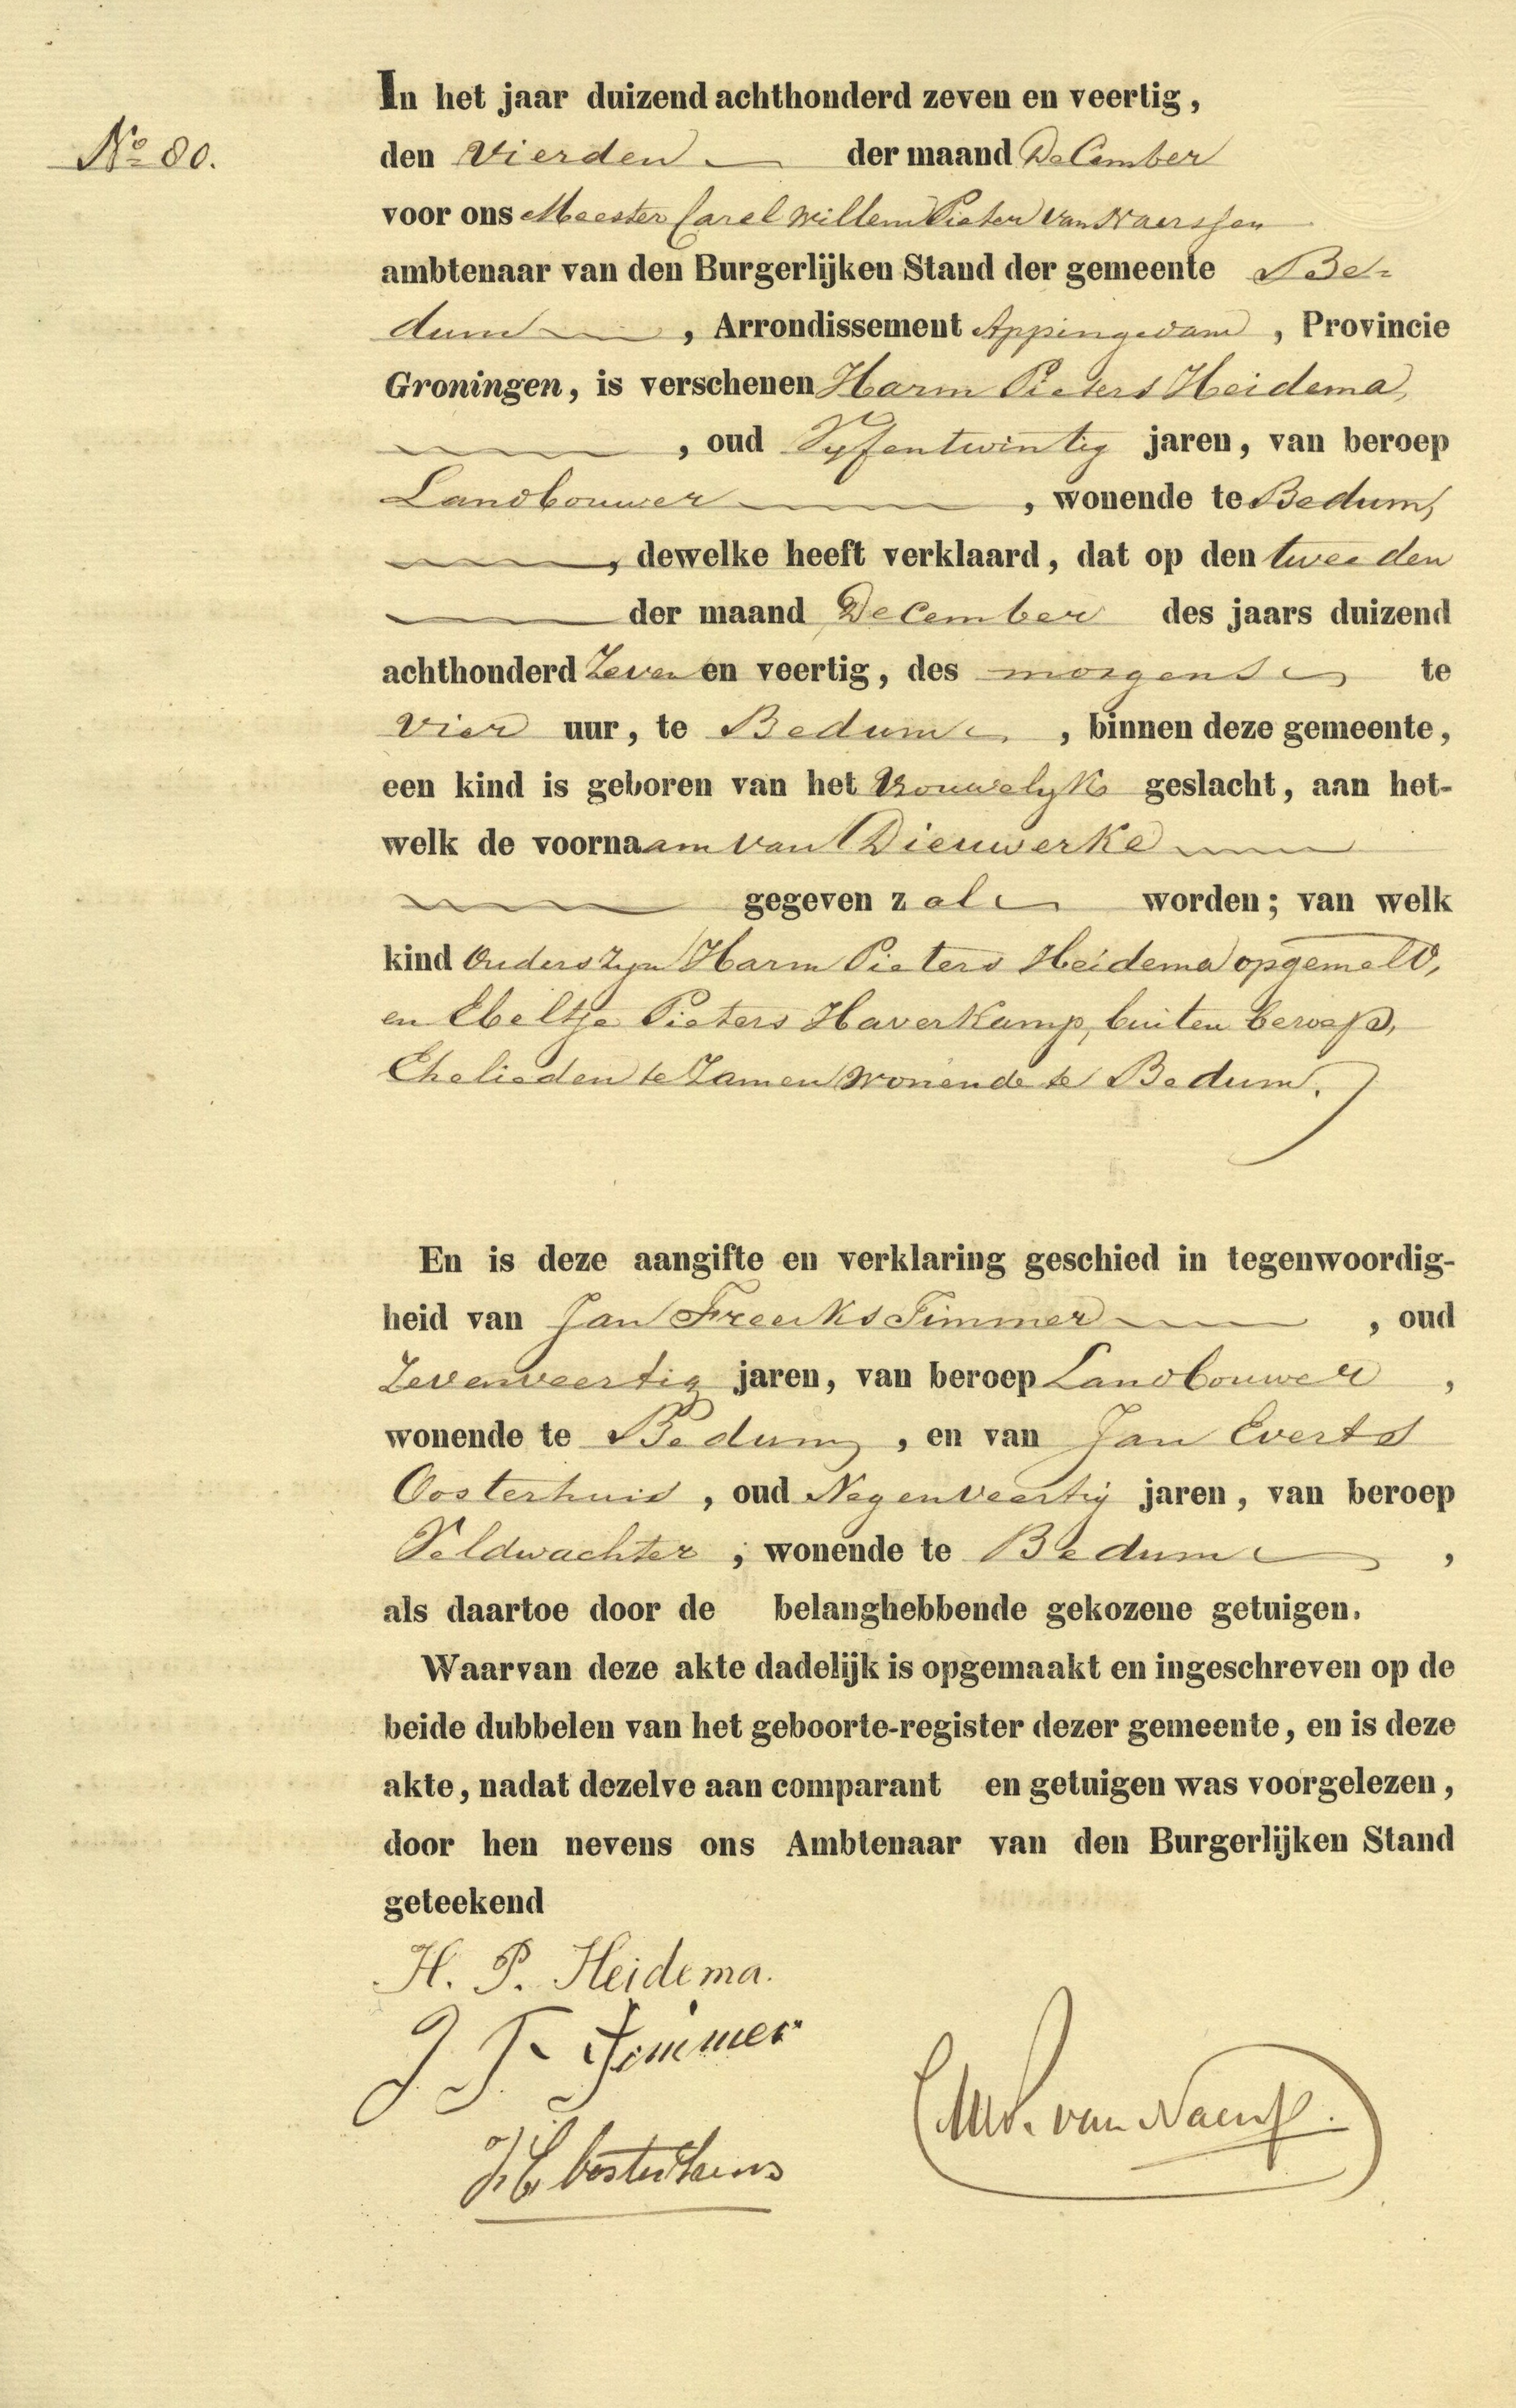 In het jaar duizend achthonderd zeven en veertig,
No 80.
den Vierden der maand December
voor ons Meester Carel Willem Pieter van Naerssen
ambtenaar van den Burgerlijken Stand der gemeente Be-
dum, Arrondissement Appingedam, Provincie
Groningen, is verschenen Harm Pieters Heidema,
, oud Vyfentwintig jaren, van beroep
Landbouwer, wonende te Bedum,
, dewelke heeft verklaard, dat op den tweeden
der maand December des jaars duizend
achthonderd Zeven en veertig, des morgens te
vier uur, te Bedum, binnen deze gemeente,
een kind is geboren van het Vrouwelyk geslacht, aan het-
welk de voornaam van Dieuwerke
gegeven zal worden; van welk
kind Ouders zyn Harm Pieters Heidema opgemeld,
en Ebeltje Pieters Haverkamp, buiten beroep,
Ehelieden te Zamen wonende te Bedum.
En is deze aangifte en verklaring geschied in tegenwoordig-
heid van Jan Freerks Timmer, oud
Zevenveertig jaren, van beroep Landbouwer,
wonende te Bedum, en van Jan Everts
Oosterhuis, oud Negenveertig jaren, van beroep
Veldwachter, wonende te Bedum,
als daartoe door de belanghebbende gekozene getuigen.
Waarvan deze akte dadelijk is opgemaakt en ingeschreven op de
beide dubbelen van het geboorte-register dezer gemeente, en is deze
akte, nadat dezelve aan comparant en getuigen was voorgelezen,
door hen nevens ons Ambtenaar van den Burgerlijken Stand
geteekend
H. P. Heidema.
J F Timmer
J E Oosterhuis
CWP. van Naerss.